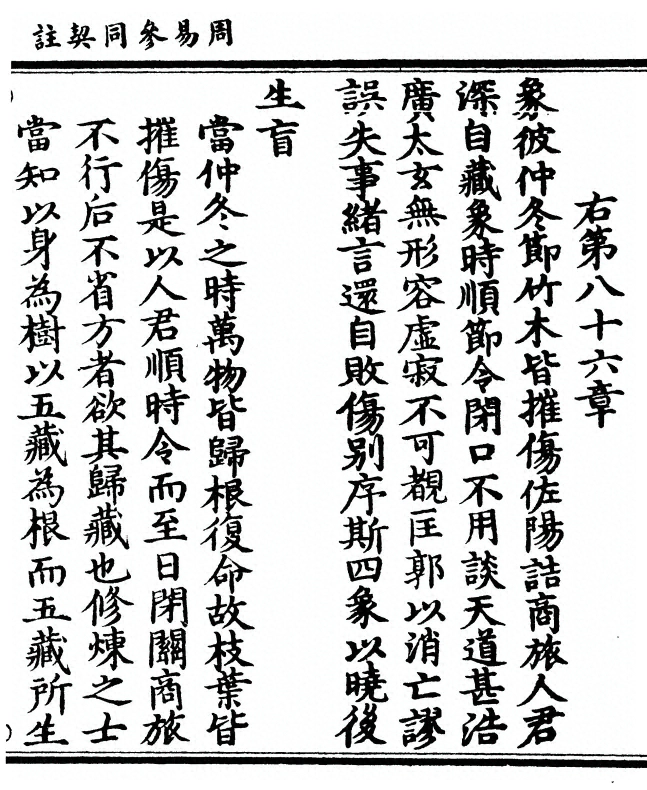 周易參同契註
右第八十六章
象彼仲冬節竹木皆摧傷佐陽詰商旅人君
深自藏象時順節令閉口不用談天道甚浩
廣太玄無形容虛寂不可覩匡郭以消亡謬
誤失事緒言還自敗傷別序斯四象以曉後
生盲
當仲冬之時萬物皆歸根復命故枝葉皆
摧傷是以人君順時令而至日閉關商旅
不行后不省方者欲其歸藏也修煉之士
當知以身為樹以五藏為根而五藏所生